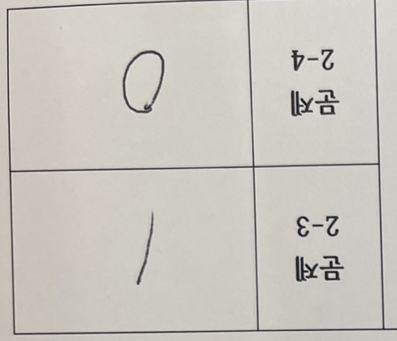 문제
2-3
1
문제
2-4
0